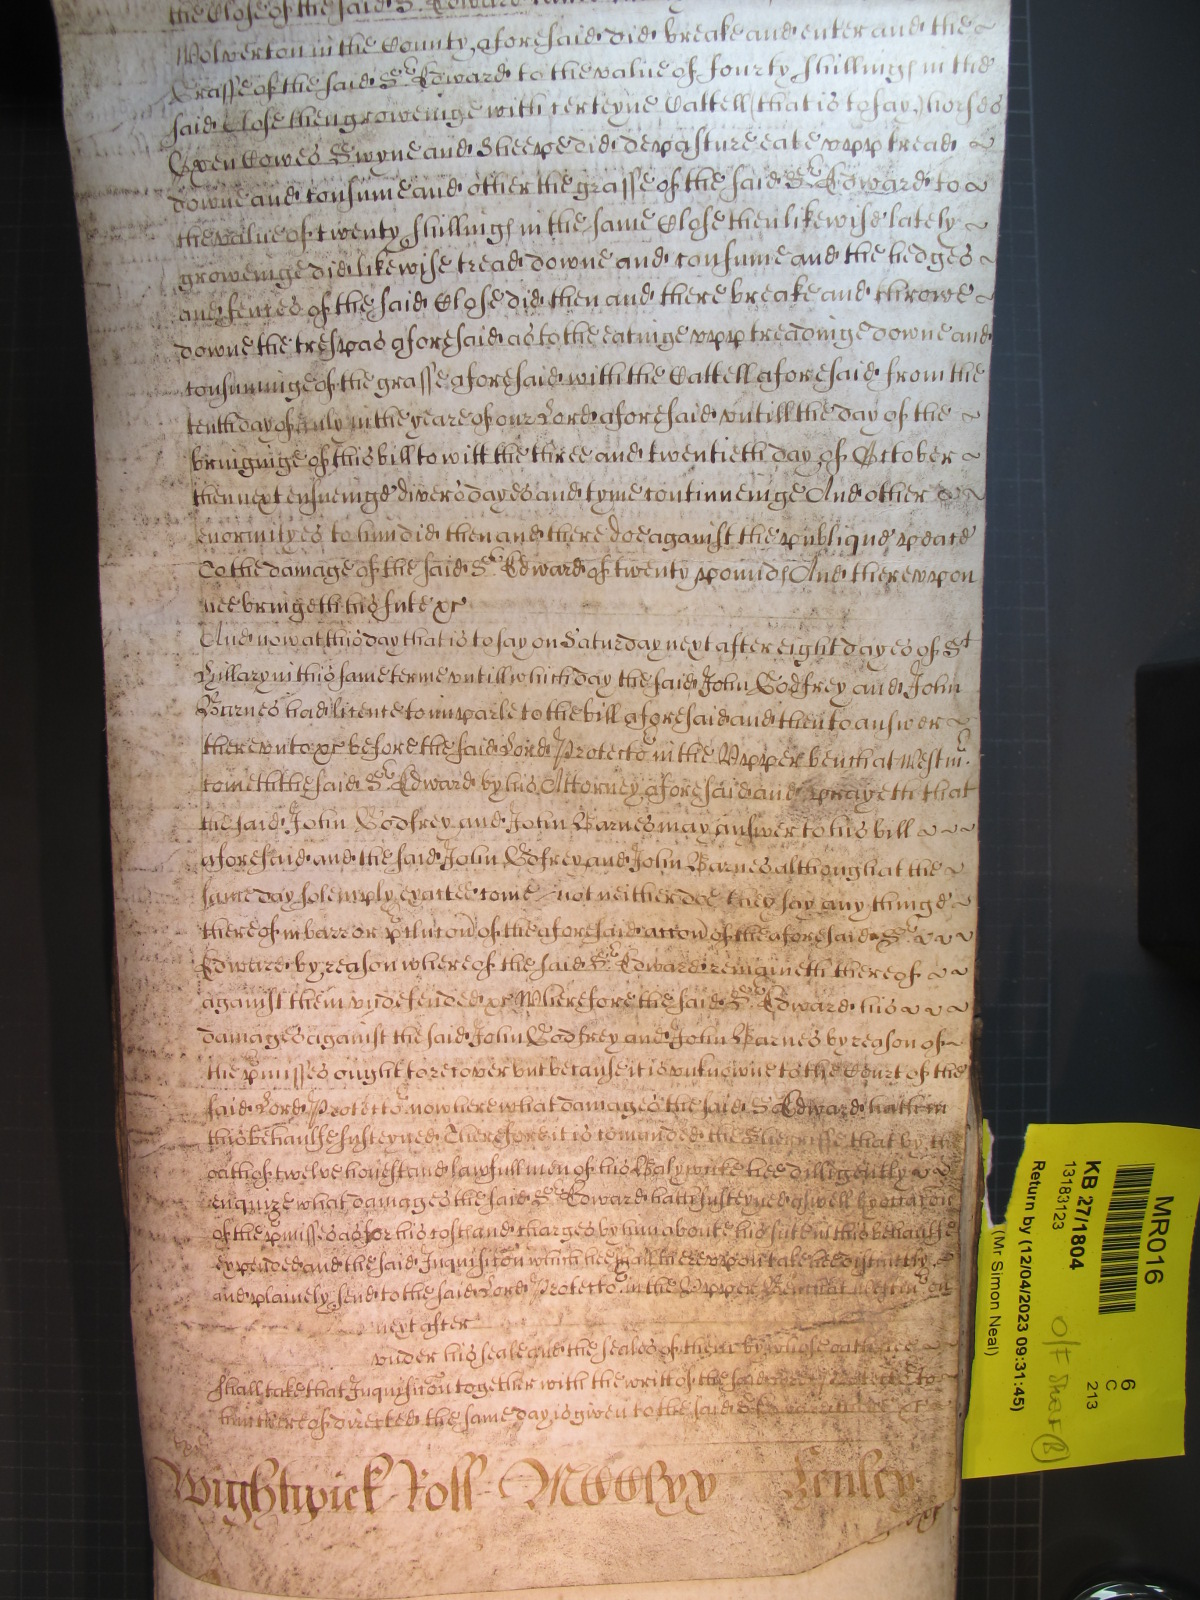 the Close of the said Sr. Edward
Wolverton in the County aforesaid did breake and enter and the
Grasse of the said Sr Edward to the value of fourty shillings in the
said Close then groweinge with certeyne Cattell (that is to say) horses
Oxen Cowes Swyne and Sheepe did depasture eate upp tread
downe and consume and other the grasse of the said Sr Edward to
the value of twenty shillings in the same Close then likewise lately
groweinge did likewise tread downe and consume and the hedges
and fences of the said Close did then and there breake and throwe
downe the trespas aforesaid as to the eatinge upp treadinge downe and
consuminge of the grasse aforesaid with the Cattell aforesaid from the
tenth day of July in the yeare of our Lord aforesaid untill the day of the
bringinge of this bill to witt the three and twentieth day of October
then next ensueinge divers dayes and tyme continueinge And other
enormityes to him did then and there doe against the publique peace
To the damage of the said Sr Edward of twenty pounds And thereupon
hee bringeth his sute &c
And now at this day that is to say on Saturday next after eight dayes of St
Hillary in this same terme untill which day the said John Godfrey and John
Barnes had licence to imparle to the bill aforesaid and then to answer
thereunto &c before the said Lord Protector in the Upper bench at Westm.
cometh the said Sr Edward by his Attorney aforesaid and prayeth that
the said John Godfrey and John Barnes may answer to his bill
aforesaid and the said John Godfrey and John Barnes although at the
same day solemply exacted come not neither doe they say any thinge
thereof in barr or pclucon of the aforesaid accon of the aforesaid Sr
Edward by reason whereof the said Sr Edward remaineth thereof
against them undefended &c Wherefore the said Sr Edward his
damages against the said John Godfrey and John Barnes by reason of
the pmisses ought to recover but because it is unknowne to the Court of the
said Lord Protector now here what damages the said Sr Edward hath in
this behaulfe susteyned Therefore it is comanded the Sheriffe that by the
oath of twelve honest and lawfull men of his Balywicke hee dilligently
enquire what damages the said Sr Edward hath susteyned aswell by occacon
of the pmisses as for his costs and charges by him about his sute in this behaulfe
expended and the said Inquisicon which hee shall thereupon take hee distinctly
and plainely send to the said Lord Protector in the Upper Bench at Westm on
next after
under his seale and the seales of them by whose oath hee
shall take that Inquisicon together with the writt of the said Lord Protector to
him thereof directed the same day is given to the said Sr Edward
Wightwick Roll MCClxx Henley
MR016
KB 27/1804
13183123
Return by (12/04/2023 09:31:45)
(Mr Simon Neal)
6
C
213